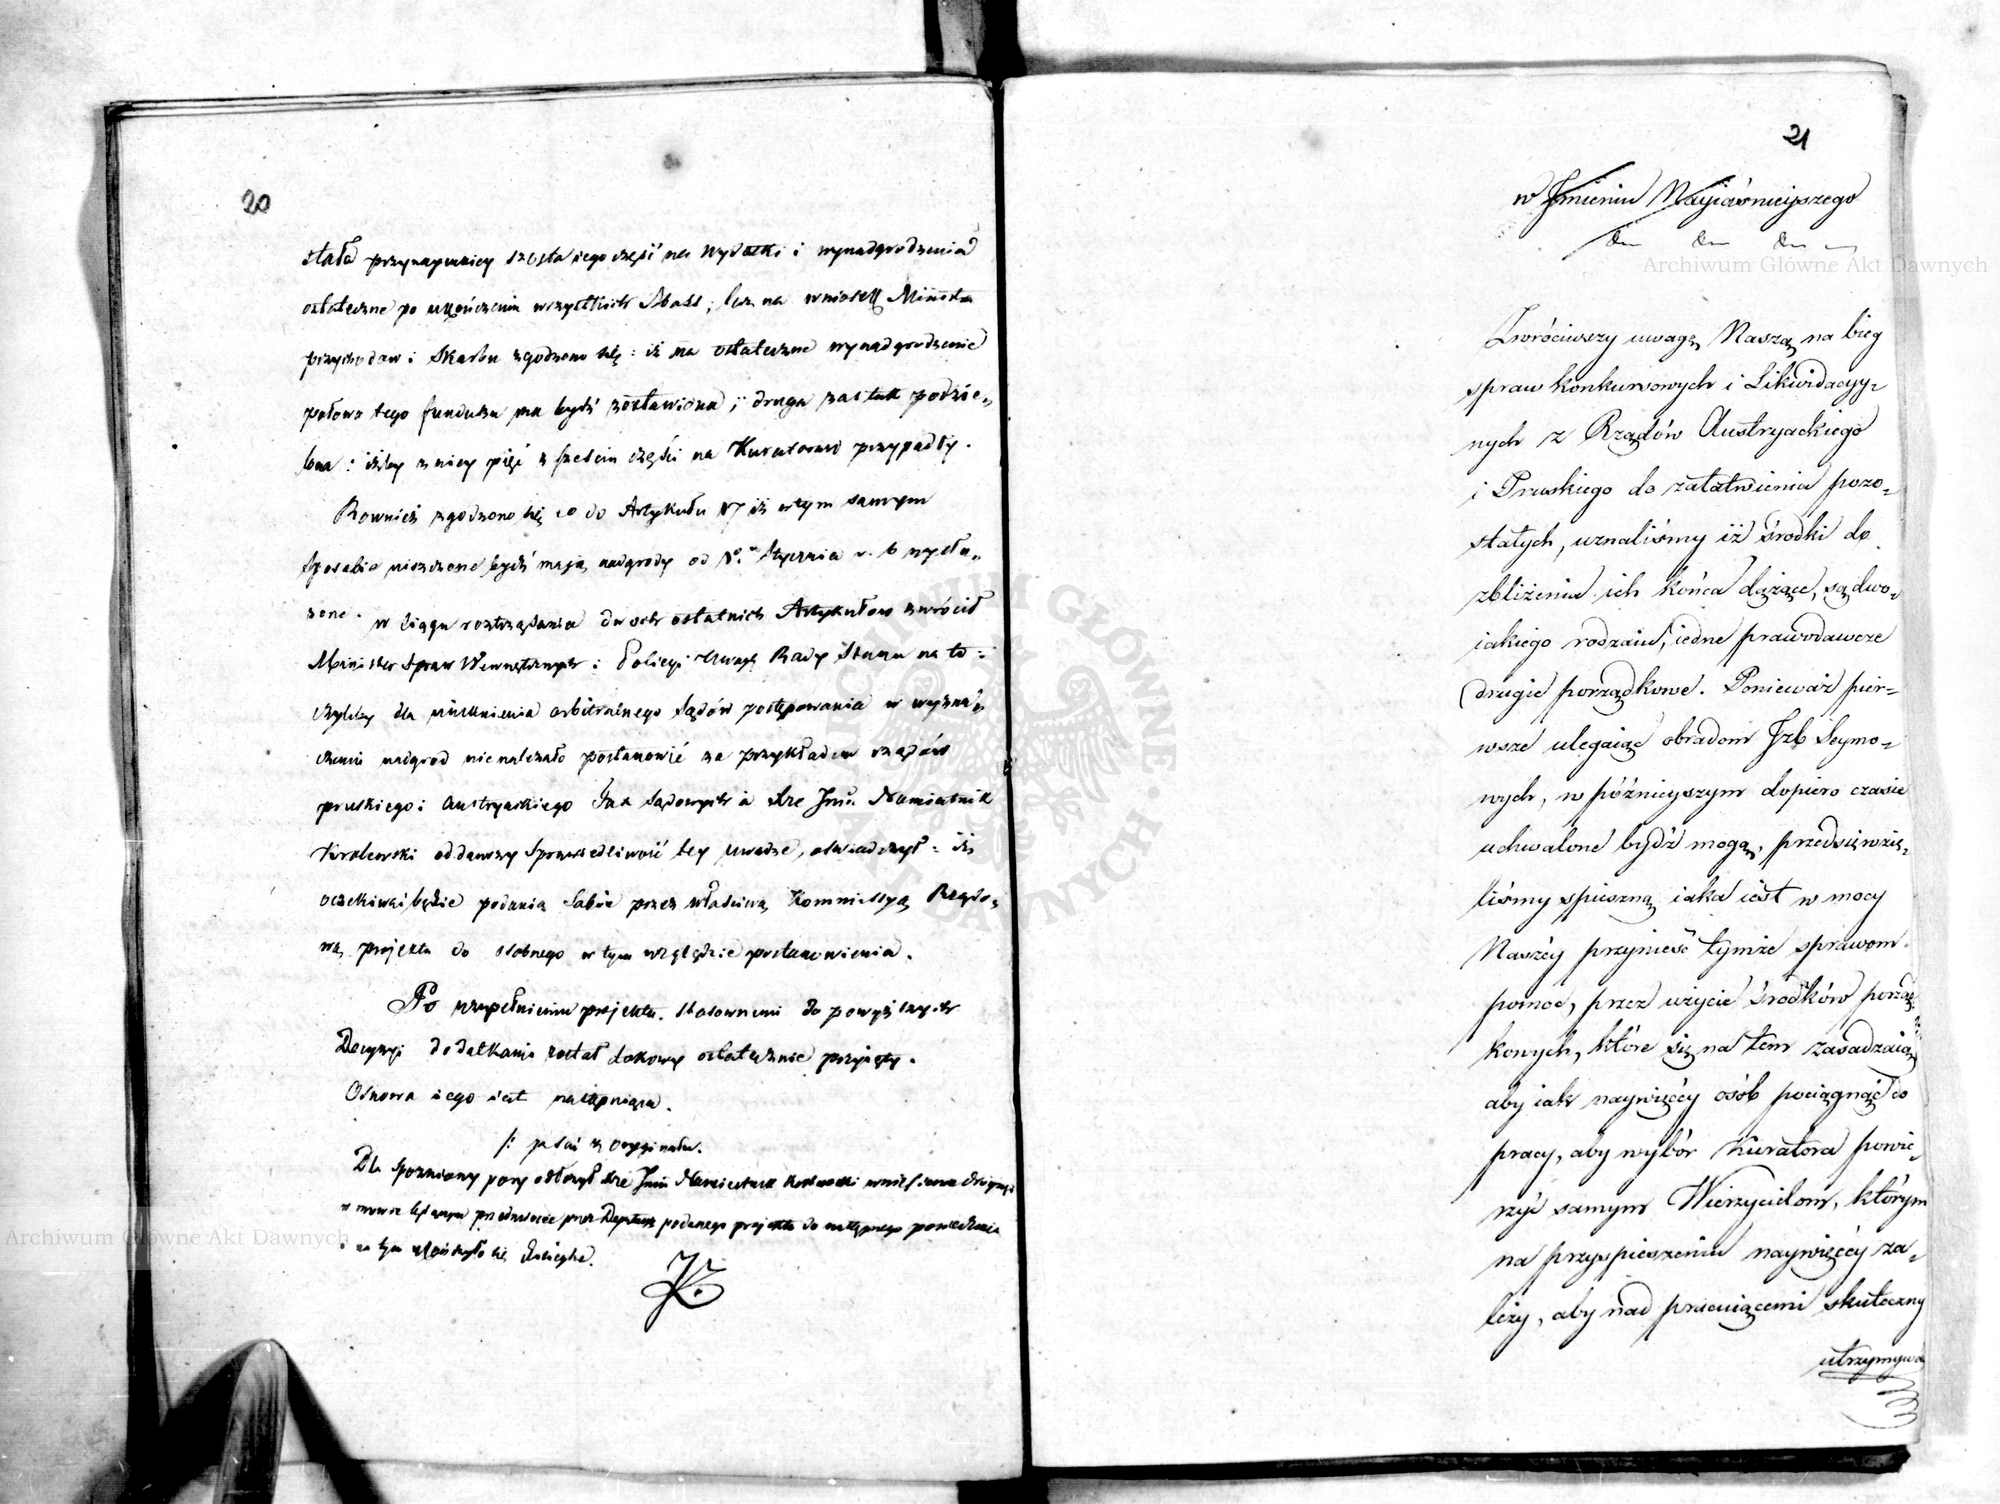 20
stała przynaymniey szósta iego część na wydatki i wynadgrodzenia
ostateczne po ukończeniu wszystkich Mass; lecz na wniosek Ministra
przychodow i Skarbu zgodzono się: iż na ostateczne wynadgrodzenie
połowa tego funduszu ma bydź zostawiona, druga zaś tak podzie-
lona: iżby z niey pięć z sześciu części na Kuratorow przypadły.
Rownież zgodzono się co do Artykułu 17 iż w tym samym
sposobie uiszczone bydź maią nadgrody od 1o Stycznia r. b wysłu-
zone. w ciągu roztrząsania dwoch ostatnich Artykułow zwrócił
Minister Spraw Wewnętrznych i Policyi Uwagę Rady Stanu na to:
czyliby dla uniknienia arbitralnego Sądów postępowania w wyzna-
czeniu nadgrod nie należało postanowić za przykładem rządów
pruskiego i Austryackiego Tax Sądowych a Xże Jmć Namiestnik
Krolewski oddawszy Sprawiedliwość tey uwadze, oświadczył: iż
oczekiwać będzie podania Sobie przez właściwą Kommissyą Rządo-
wą projektu do osobnego w tym względzie postanowienia.
Po uzupełnieniu projektu stosownemi do powyższych
Decyzyi dodatkami został takowy ostatecznie przyięty.
Osnowa iego iest następuiąca.
/: pisać z oryginału.
Dla spoznioney pory odłożył Xże Jmć Namiestnik
podanego projektu do następnego posiedzenia
i na tym ukończyło się
21
w Jmieniu Nayiaśnieyszego
Zwróciwszy uwagę Naszą na bieg
spraw konkursowych i Likwidacyy-
nych z Rządów Austryackiego
i Pruskiego do załatwienia pozo-
stałych, uznaliśmy iż środki do
zbliżenia ich końca dążące, są dwo-
iakiego rodzaiu, iedne prawodawcze
drugie porządkowe. Ponieważ pier-
wsze ulegaiąc obradom Jzb Seymo-
wych, w późnieyszym dopiero czasie
uchwalone bydź mogą, przedsięwzię-
liśmy spieszną iaka iest w mocy
Naszéy przynieść tymże sprawom
pomoc, przez użycie środków porząd-
kowych, które się na tem zasadzaią
aby iak naywięcéy osób pociągnąć do
pracy, aby wybór Kuratora powie-
rzyć samym Wierzycielom, którym
na przyspieszeniu naywięcéy za-
leży, aby nad pracuiącemi skuteczny
utrzymywać
Archiwum Główne Akt Dawnych
Archiwum Główne Akt Dawnych
ARCHIWUM GŁÓWNE AKT DAWNYCH